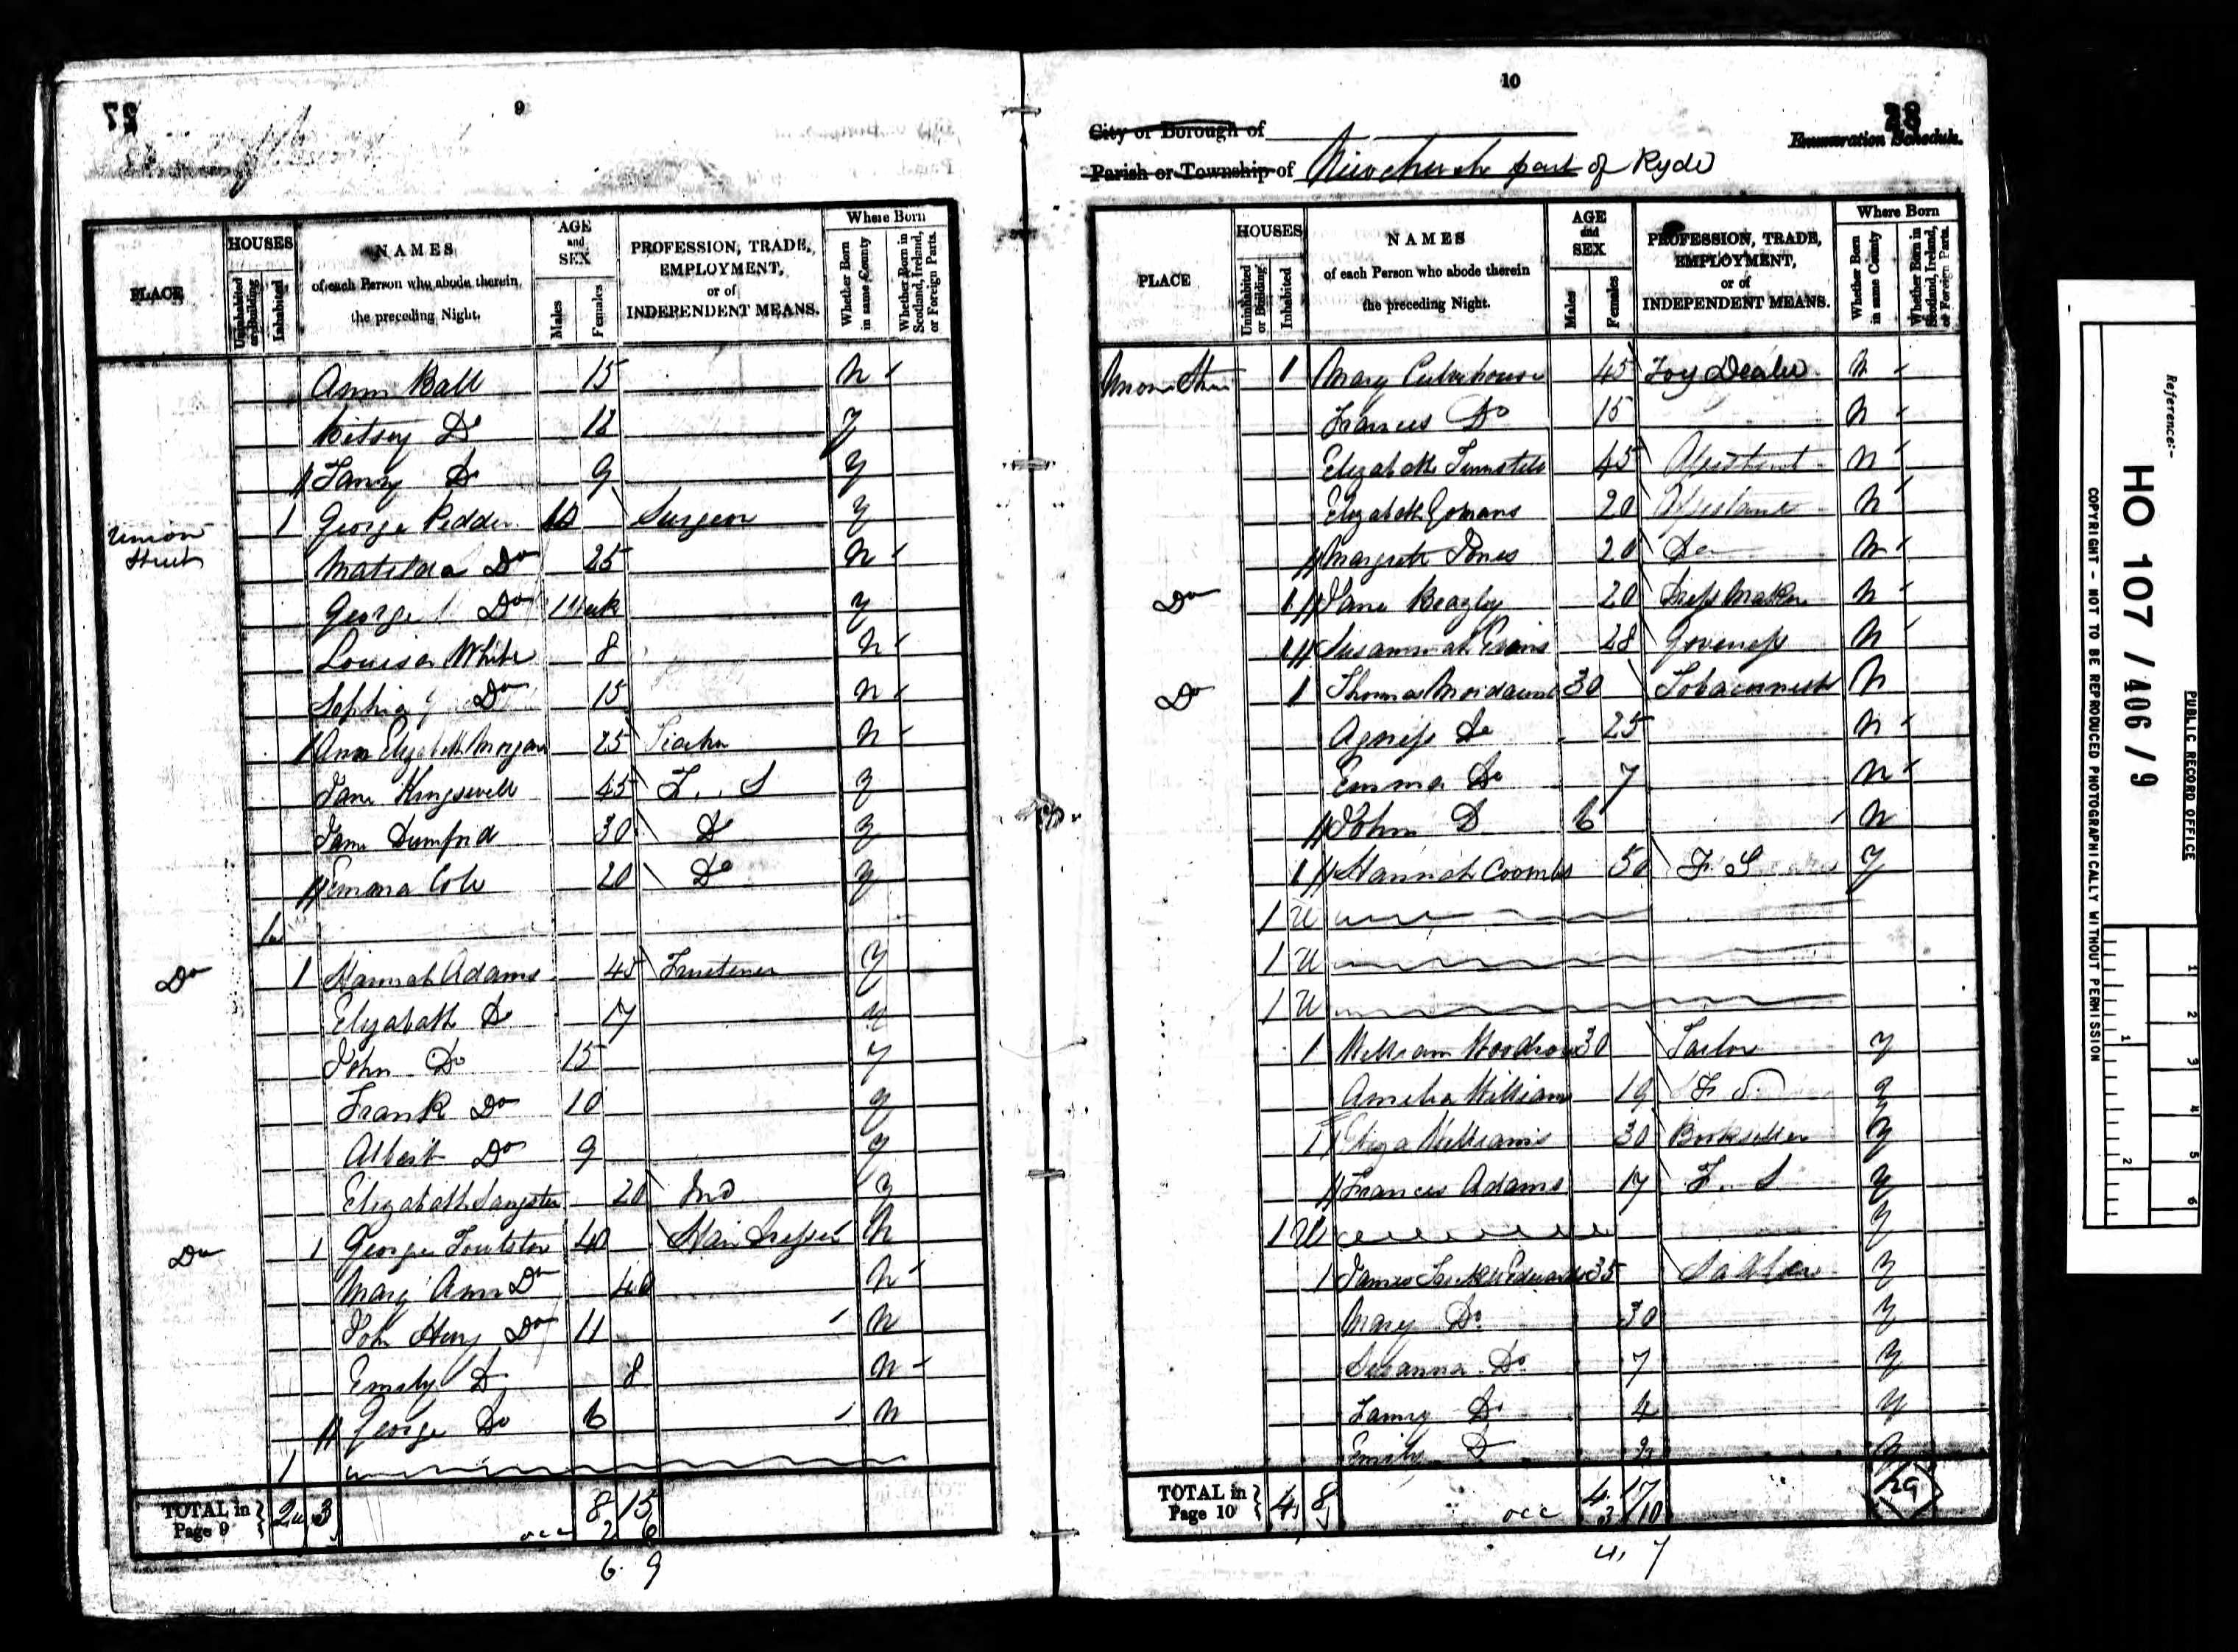 9
27
PLACE
HOUSES
Uninhabited or Building
Inhabited
NAMES
of each Person who abode therein,
the preceding Night.
AGE
and
SEX
Males
Females
PROFESSION, TRADE,
EMPLOYMENT,
or of
INDEPENDENT MEANS.
Where Born
Whether Born in same County
Whether Born in Scotland, Ireland, or Foreign Parts.
Ann Ball 15 N
Betsey Do 12 Y
Fanny Do 9 Y
Union Street 1 George Pedder 40 Surgeon Y
Matilda Do 25 N
George Do 1 Week Y
Louisa White 8 N
Sophia Do 15 N
Ann Elizabeth Morgan 25 N
Jane Kingswell 45 F. S Y
Jane Dumford 30 Do Y
Emma Cole 20 Do Y
1u
Do 1 Hannah Adams 45 Fruiterer Y
Elizabeth Do 17 Y
John Do 15 Y
Frank Do 10 Y
Albert Do 9 Y
Elizabeth Sangster 20 Ind Y
Do 1 George 40 Hair Dresser N
Mary Ann Do 40 N
John Henry Do 11 N
Emily Do 8 N
George Do 6 N
1
TOTAL in Page 9 2u 3 8 15
occ 2 6
6 9
10
28
City or Borough of
Enumeration Schedule.
Parish or Township of Newchurch part of Ryde
PLACE
HOUSES
Uninhabited or Building
Inhabited
NAMES
of each Person who abode therein
the preceding Night.
AGE
and
SEX
Males
Females
PROFESSION, TRADE,
EMPLOYMENT,
or of
INDEPENDENT MEANS.
Where Born
Whether Born in same County
Whether Born in Scotland, Ireland, or Foreign Parts.
Union Street 1 Mary Culverhouse 45 Toy Dealer N
Frances Do 15 N
Elizabeth 45 Assistant N
Elizabeth 20 Assistant N
Margrett Jones 20 Do N
Do 1 Jane Beazley 20 Dress Maker N
1 Susannah Evans 28 Governess N
Do 1 Thomas Mordaunt 30 Tobacconist N
Agness Do 25 N
Emma Do 7 N
John D 6 N
1 Hannah Coombs 50 F. S Y
1 U
1 U
1 U
1 William Woodrow 30 Tailor Y
Amelia Williams 19 F S Y
1 Eliza Williams 30 Bookseller Y
Frances Adams 17 F. S Y
1 U Y
1 James Edwards 35 Sadler Y
Mary Do 30 Y
Susanna Do 7 Y
Fanny Do 4 Y
Emily D Y
TOTAL in Page 10 4 8 4 17
occ 3 10
29
4 7
Reference:-
HO 107 / 406 / 9
PUBLIC RECORD OFFICE
COPYRIGHT - NOT TO BE REPRODUCED PHOTOGRAPHICALLY WITHOUT PERMISSION
1 2 3 4 5 6
1 2